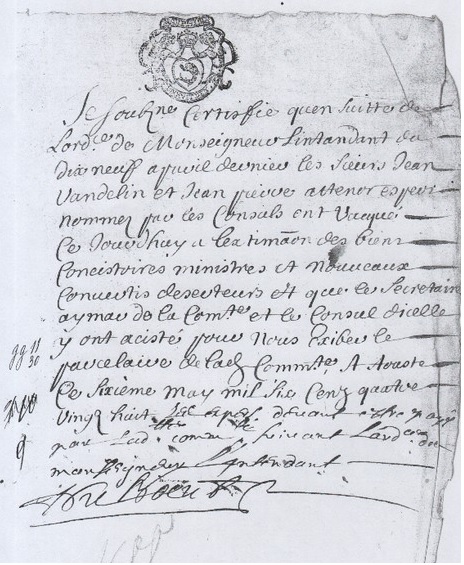 Je soubzne Certiffie quen suitte de
Lordce de Monseigneur Lintandant du
dix neuf apvril dernier les sieurs Jean
Vandelin et Jean pierre attenor expers
nommez par les Consuls ont Vacqué
Ce Jourdhuy a lestimãon des biens
Concistoires ministres et Nouveaux
Convertis deserteurs Et que le Secretaire
aymar de la Comte et le Consul dicelle
y ont acistés pour Nous Exiber le
parcelaire de lad Commte A Aouste
Ce sixième May mil six Cenz quatre
Vingz huit devant estre payé
par Lad comu suivant Lordce de
monseigneur Lintendant